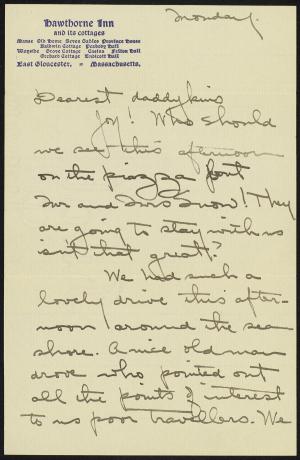 Monday.
Hawthorne Inn
and its cottages
Manse Old Home Seven Gables Province House
Baldwin Cottage Peabody Hall
Wayside Grove Cottage Casino Fulton Hall
Orchard Cottage Endicott Hall
East Gloucester, Massachusetts.
Dearest daddykins
Joy! Who should
we see this afternoon
on the piazza but
Mr and Mrs Snow! They
are going to stay with us
isn't that great?
We had such a
lovely drive this after-
noon around the sea
shore. A nice old man
drove who pointed out
all the points of interest
to us poor travellers. We